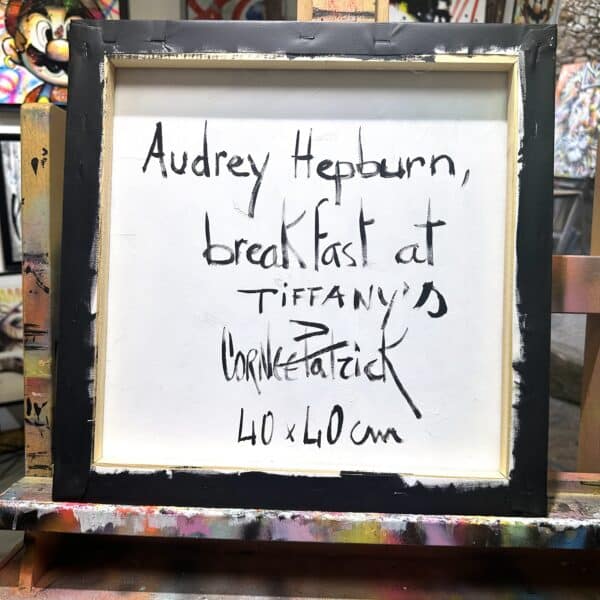 Audrey Hepburn,
breakfast at
TIFFANY'S
CORNEE Patrick
40 x 40 cm